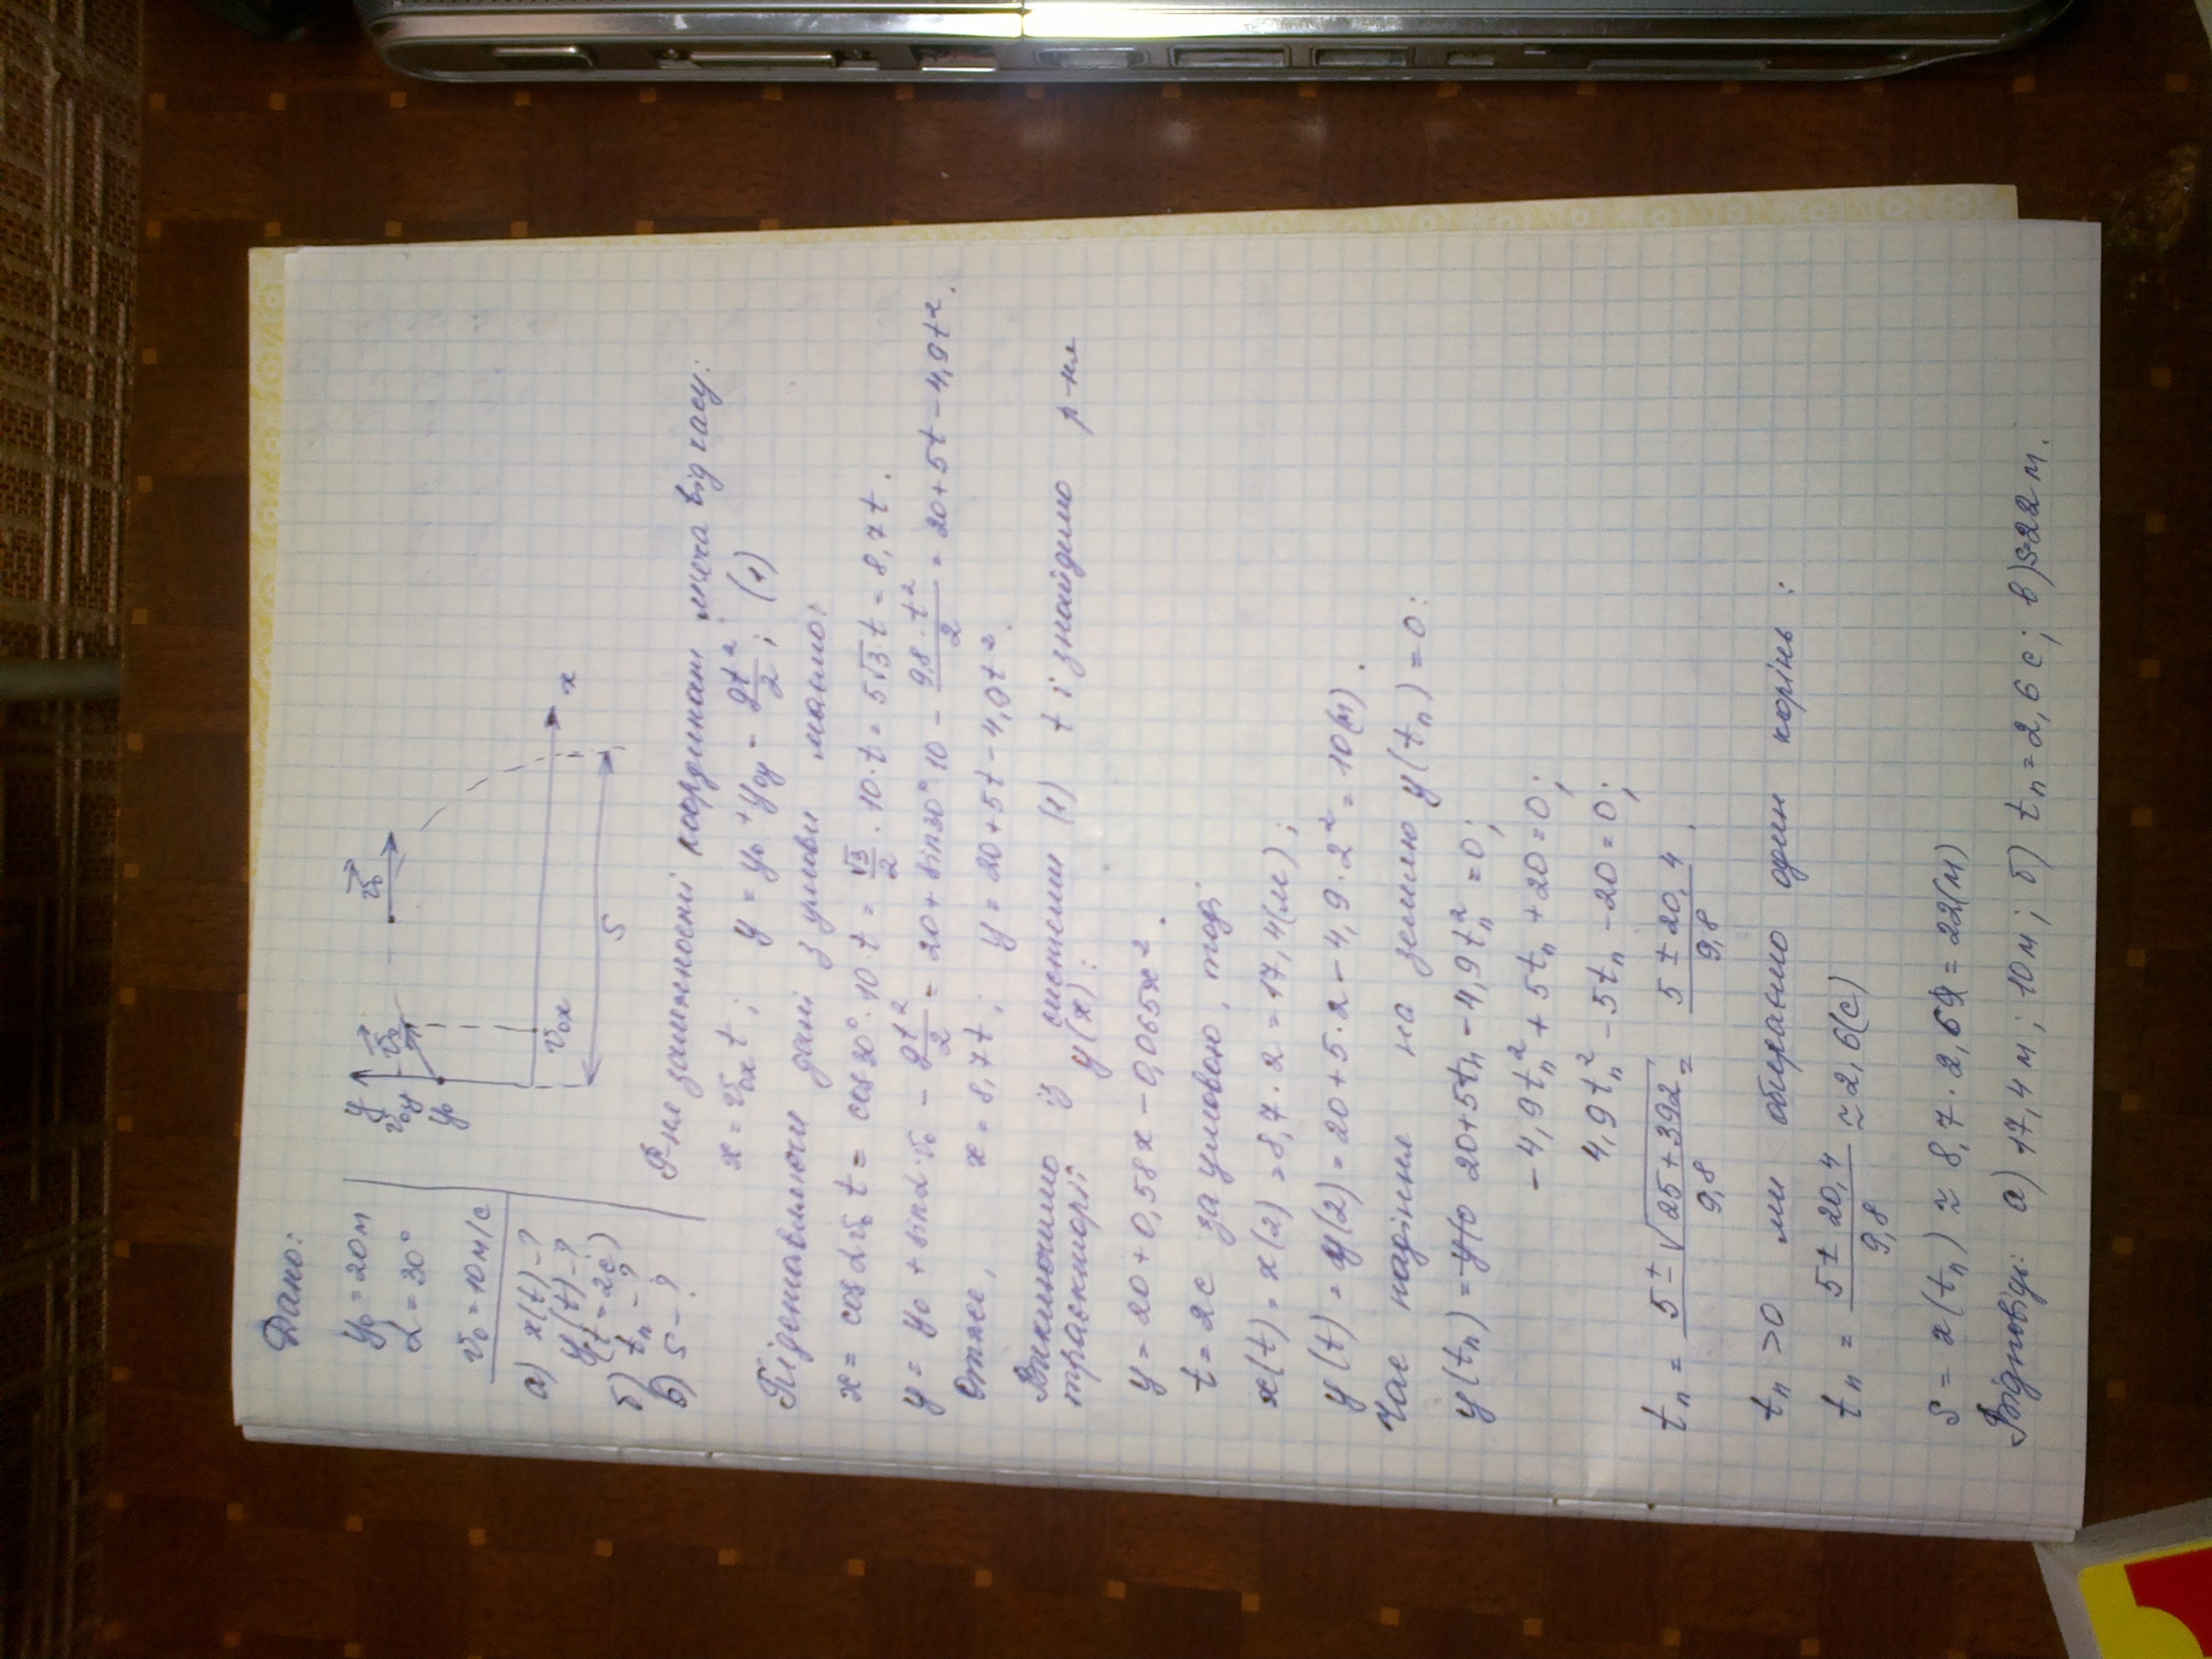 Дано:
y₀ = 20 м
α = 30°
v₀ = 10 м/с
а) x(t) - ?
y(t) - ?
(t = 2c)
б) tₙ - ?
в) S - ?
y
v₀y
y₀
v₀
v₀x
v₀
x
S
Р-ня залежності координат м'яча від часу:
x = v₀ₓ t ; y = y₀ + y₀y - gt²/2 ; (1)
Підставляючи дані з умови маємо:
x = cos α v₀ t = cos 30° · 10 · t = √3/2 · 10 · t = 5√3 t = 8,7 t .
y = y₀ + sin α · v₀ - gt²/2 = 20 + sin 30° · 10 - 9,8 · t²/2 = 20 + 5t - 4,9t² .
Отже, x = 8,7 t ; y = 20 + 5t - 4,9t² .
Виключимо із системи (1) t і знайдемо р-ня
траєкторії y(x) :
y = 20 + 0,58x - 0,065x² .
t = 2c за умовою, тоді
x(t) = x(2) = 8,7 · 2 = 17,4 (м) ;
y(t) = y(2) = 20 + 5 · 2 - 4,9 · 2² = 10 (м) .
Час падіння на землю y(tₙ) = 0 :
y(tₙ) = 20 + 5tₙ - 4,9tₙ² = 0 ;
-4,9tₙ² + 5tₙ + 20 = 0 ;
4,9tₙ² - 5tₙ - 20 = 0 ;
tₙ = 5 ± √25 + 392 / 9,8 = 5 ± 20,4 / 9,8 .
tₙ > 0 ми обираємо один корінь :
tₙ = 5 ± 20,4 / 9,8 ≈ 2,6 (c)
S = x(tₙ) ≈ 8,7 · 2,69 = 22 (м)
Відповідь: а) 17,4 м ; 10 м ; б) tₙ = 2,6 c ; в) S=22 м .